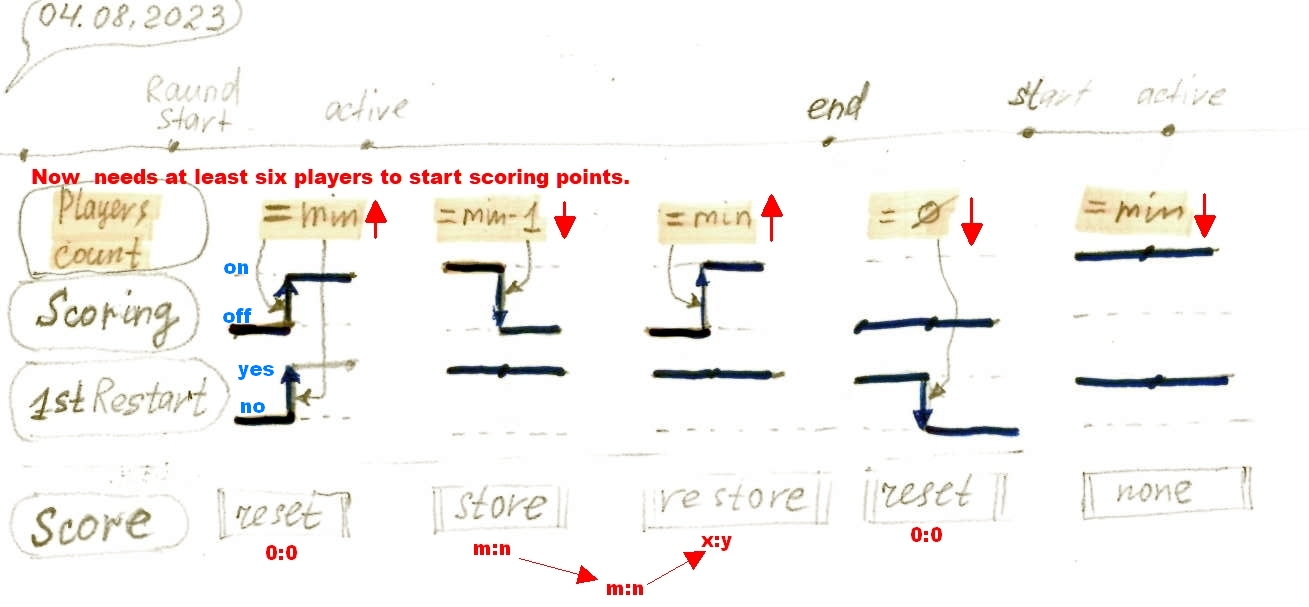 04.08.2023
Round
Start
active
end
start
active
Now needs at least six players to start scoring points.
Players
count
=min
=min-1
=min
=ø
=min
on
Scoring
off
yes
1st Restart
no
Score
reset
store
restore
reset
none
0:0
m:n
x:y
0:0
m:n